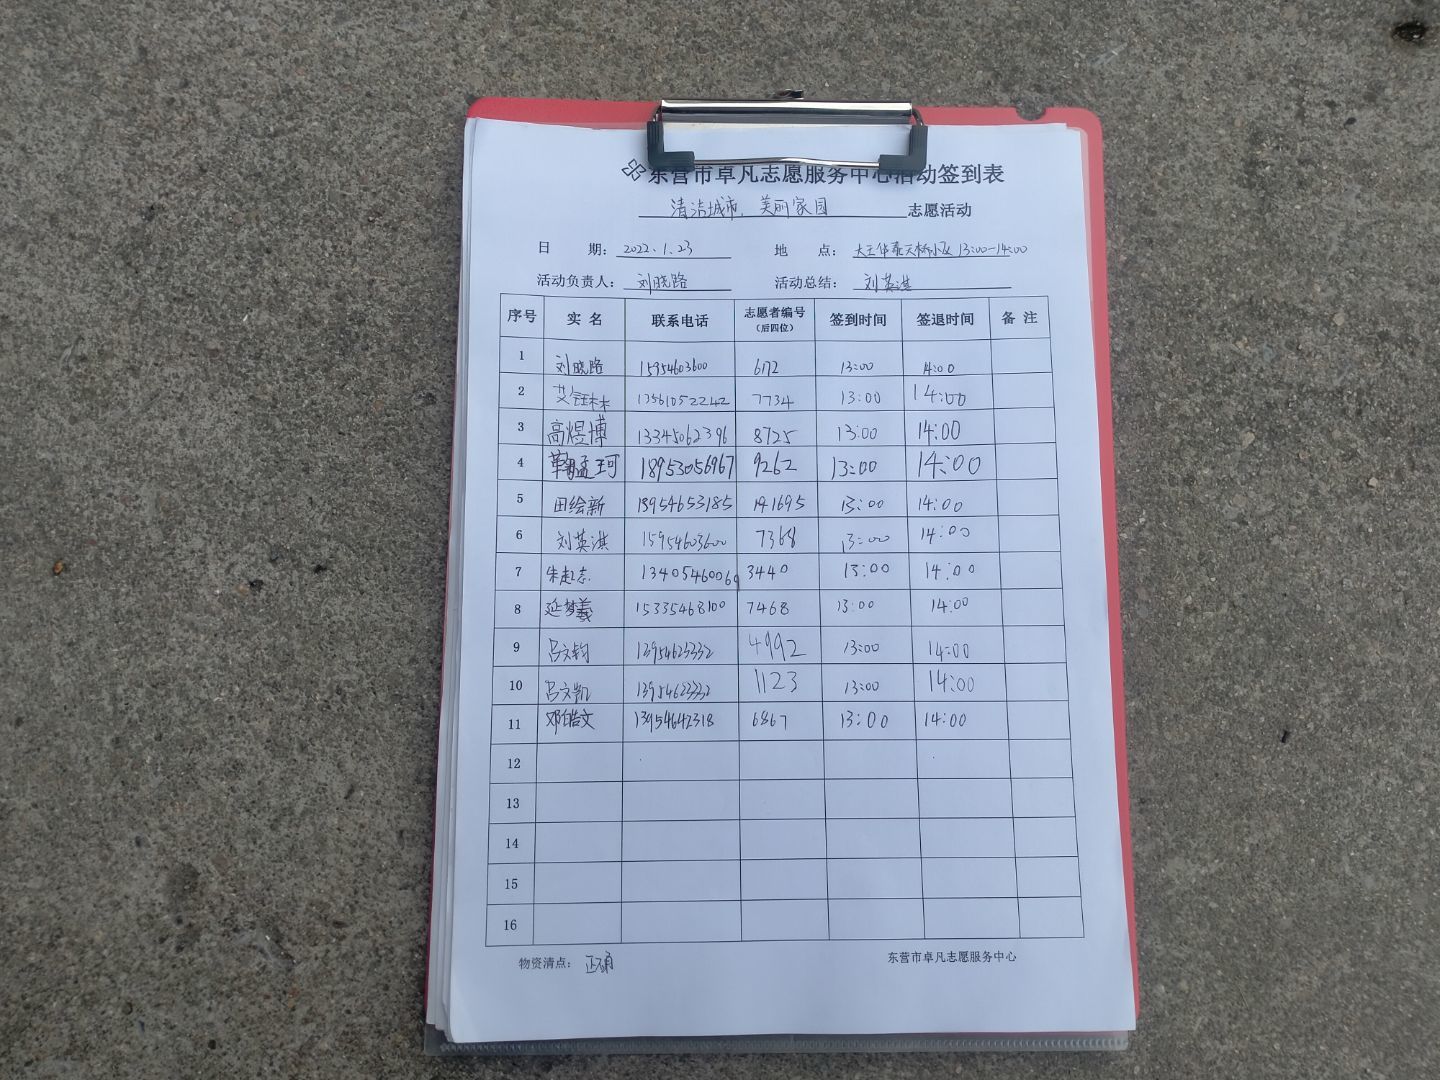 东营市卓凡志愿服务中心活动签到表
清洁城市、美丽家园 志愿活动
日 期： 2022.1.23 地 点： 大王华泰天桥小区 13:00-14:00
活动负责人： 刘晓路 活动总结： 刘英淇
序号 实名 联系电话 志愿者编号（后四位） 签到时间 签退时间 备注
1 刘晓路 15954603600 6172 13:00 14:00
2 13561052242 7734 13:00 14:00
3 高煜博 13345062396 8725 13:00 14:00
4 鞠孟珂 18953056967 9262 13:00 14:00
5 田绘新 13954653185 191695 13:00 14:00
6 刘英淇 15954603600 7368 13:00 14:00
7 朱起志 13405460069 3440 13:00 14:00
8 延梦羲 15335468100 7468 13:00 14:00
9 吕文钧 13954623332 4992 13:00 14:00
10 吕文凯 13954623332 1123 13:00 14:00
11 邓皓文 13954642318 6867 13:00 14:00
12
13
14
15
16
物资清点： 正确 东营市卓凡志愿服务中心